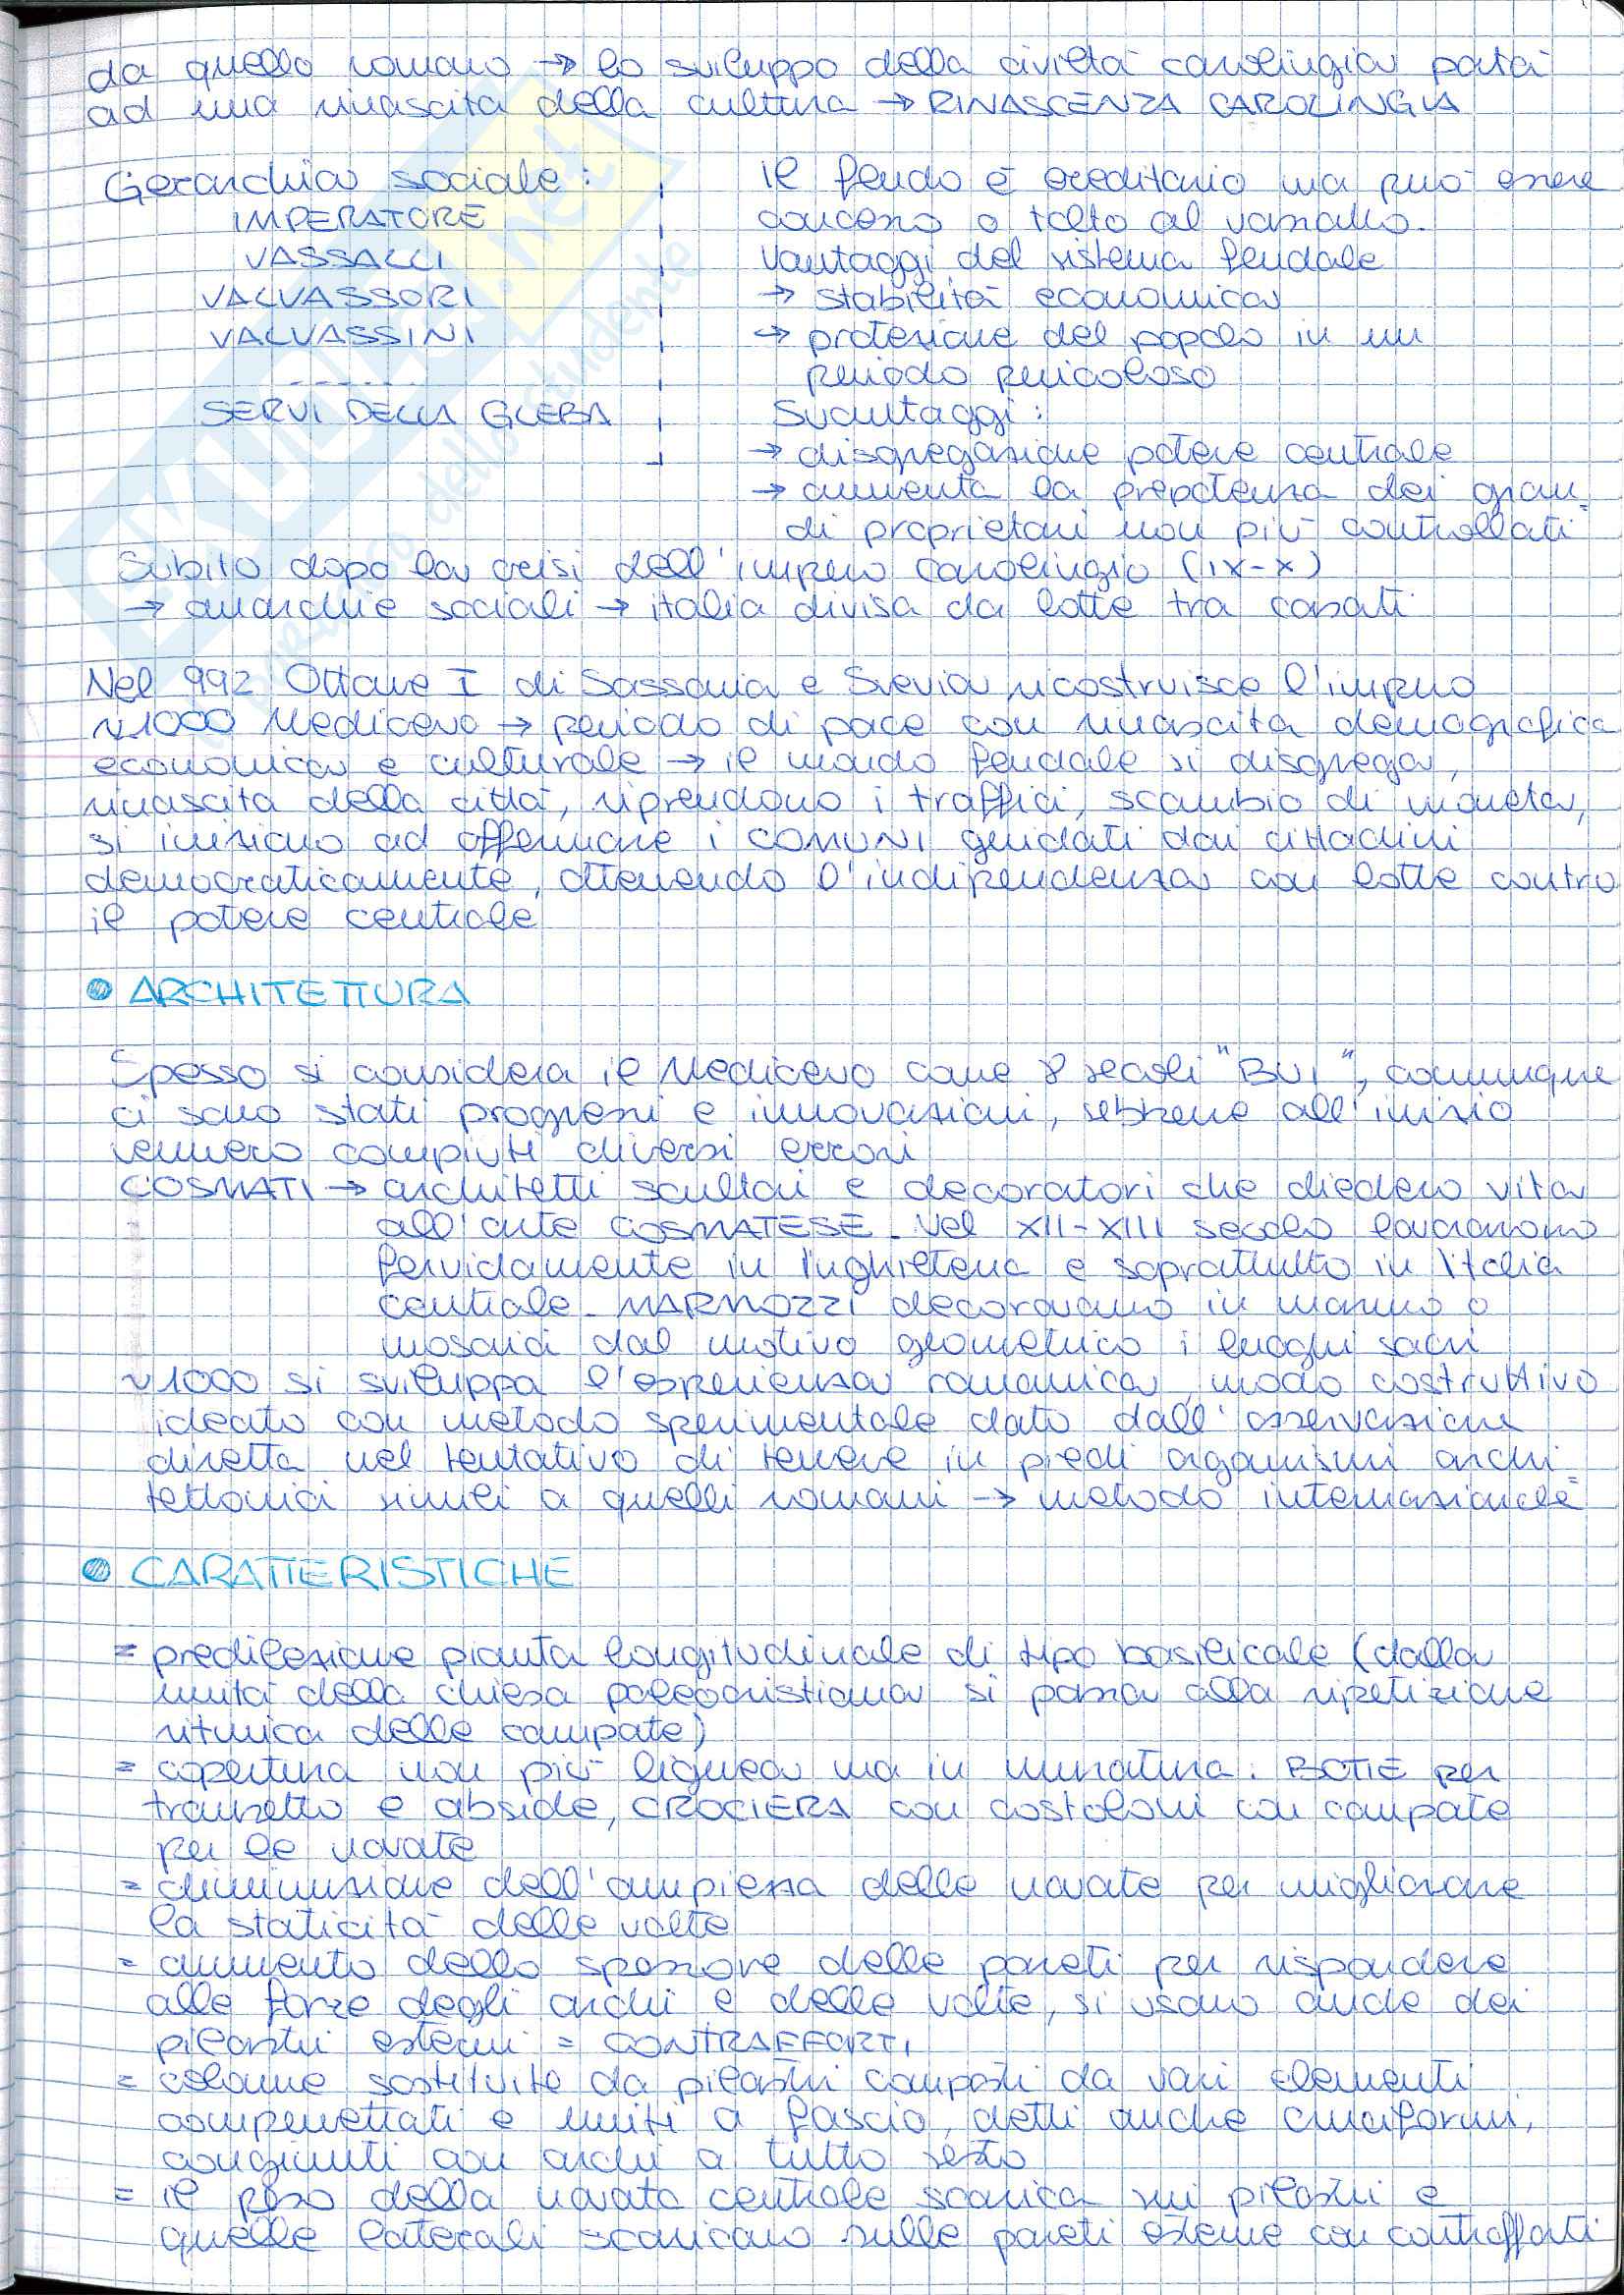 da quello romano → lo sviluppo della civiltà carolingia porta
ad una rinascita della cultura → RINASCENZA CAROLINGIA
Gerarchia sociale:
IMPERATORE
VASSALLI
VALVASSORI
VALVASSINI
------
SERVI DELLA GLEBA
il feudo è ereditario ma può essere
concesso o tolto al vassallo.
Vantaggi del sistema feudale
→ stabilità economica
→ protezione del popolo in un
periodo pericoloso
Svantaggi:
→ disgregazione potere centrale
→ aumenta la prepotenza dei gran=
di proprietari non più controllati
Subito dopo la crisi dell'impero carolingio (IX-X)
→ anarchie sociali → italia divisa da lotte tra casati
Nel 992 Ottone I di Sassonia e Svevia ricostruisce l'impero
~1000 Medioevo → periodo di pace con rinascita demografica
economica e culturale → il mondo feudale si disgrega,
rinascita della città, riprendono i traffici, scambio di moneta,
si iniziano ad affermare i COMUNI guidati dai cittadini
democraticamente, ottenendo l'indipendenza con lotte contro
il potere centrale
ARCHITETTURA
Spesso si considera il Medioevo come 8 secoli "BUI", comunque
ci sono stati progressi e innovazioni, sebbene all'inizio
vennero compiuti diversi errori
COSMATI → architetti scultori e decoratori che diedero vita
all'arte COSMATESE. Nel XII-XIII secolo lavorarono
fervidamente in Inghilterra e soprattutto in Italia
centrale. MARMOZZI decoravano in marmo o
mosaici dal motivo geometrico i luoghi sacri
~1000 si sviluppa l'esperienza romanica, modo costruttivo
ideato con metodo sperimentale dato dall'osservazione
diretta nel tentativo di tenere in piedi organismi archi=
tettonici simili a quelli romani → metodo internazionale
CARATTERISTICHE
= predilezione pianta longitudinale di tipo basilicale (dalla
unità della chiesa paleocristiana si passa alla ripetizione
ritmica delle campate)
= copertura non più lignea ma in muratura. BOTTE per
transetto e abside, CROCIERA con costoloni con campate
per le navate
= diminuzione dell'ampiezza delle navate per migliorare
la staticità delle volte
= aumento dello spessore delle pareti per rispondere
alle forze degli archi e delle volte, si usano anche dei
pilastri esterni = CONTRAFFORTI
= colonne sostituite da pilastri composti da vari elementi
compenetrati e uniti a fascio, detti anche cruciformi,
congiunti con archi a tutto sesto
= il peso della navata centrale scarica sui pilastri e
quelle laterali scaricano sulle pareti esterne con contrafforti
SKUOLA.net
il paradiso dello studente